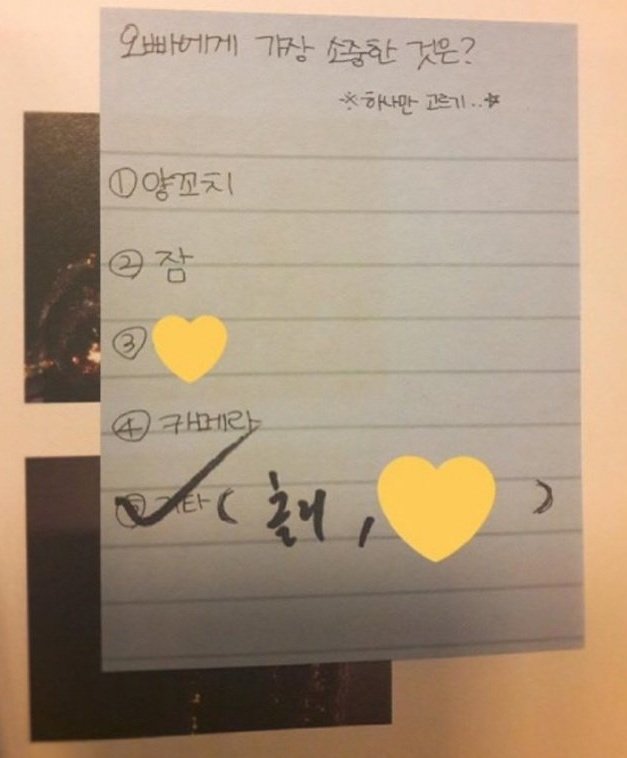 오빠에게 가장 소중한 것은?
※하나만 고르기..☆
① 양꼬치
② 잠
③
④ 카메라
⑤ 기타 ( , )